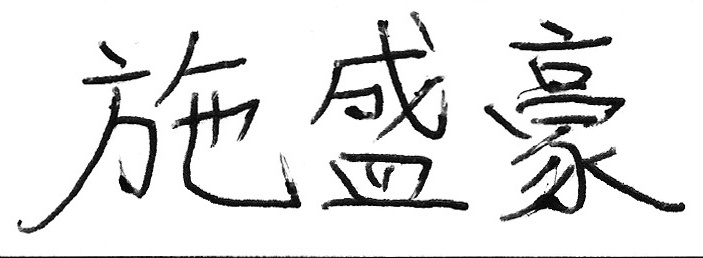 施盛豪